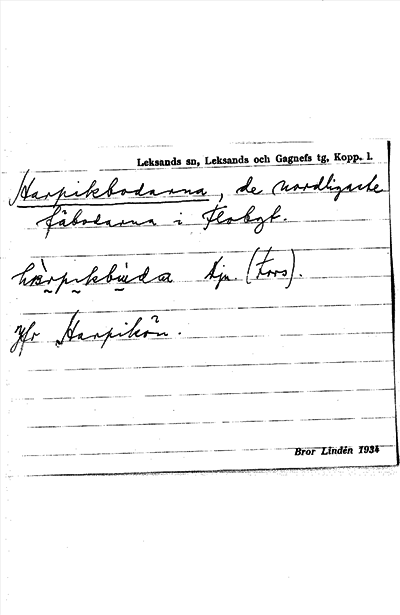 Leksands sn, Leksands och Gagnefs tg, Kopp. l.
Harpikbodarna, de nordligaste
fäbodarna i Flobygt.
Jfr Harpikån.
Bror Lindén 1934